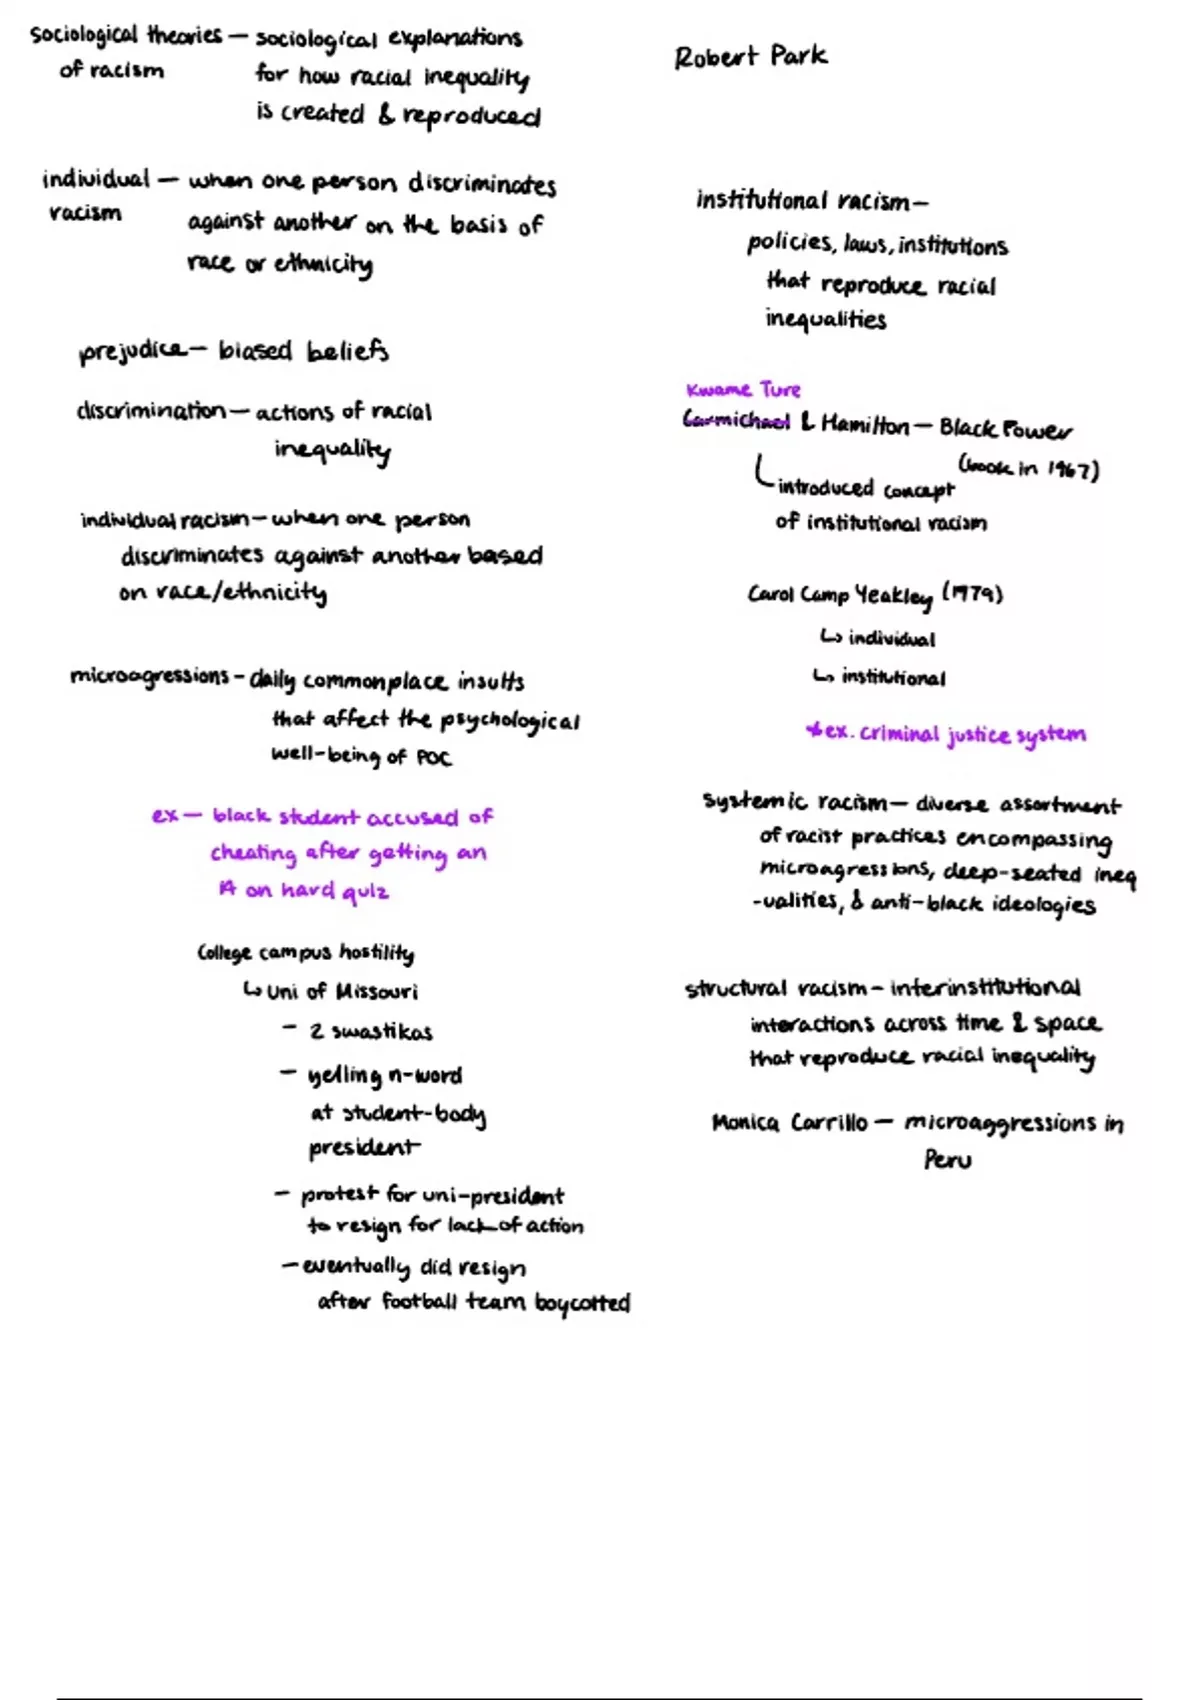 sociological theories — sociological explanations
of racism for how racial inequality
is created & reproduced
individual — when one person discriminates
racism against another on the basis of
race or ethnicity
prejudice — biased beliefs
discrimination — actions of racial
inequality
individual racism — when one person
discriminates against another based
on race/ethnicity
microagressions - daily commonplace insults
that affect the psychological
well-being of POC
ex — black student accused of
cheating after getting an
A on hard quiz
College campus hostility
↳ Uni of Missouri
- 2 swastikas
- yelling n-word
at student-body
president
- protest for uni-president
to resign for lack of action
- eventually did resign
after football team boycotted
Robert Park
institutional racism —
policies, laws, institutions
that reproduce racial
inequalities
Kwame Ture
Carmichael & Hamilton — Black Power
(book in 1967)
introduced concept
of institutional racism
Carol Camp Yeakley (1979)
↳ individual
↳ institutional
*ex. criminal justice system
systemic racism — diverse assortment
of racist practices encompassing
microagressions, deep-seated ineq
-ualities, & anti-black ideologies
structural racism - interinstitutional
interactions across time & space
that reproduce racial inequality
Monica Carrillo — microaggressions in
Peru